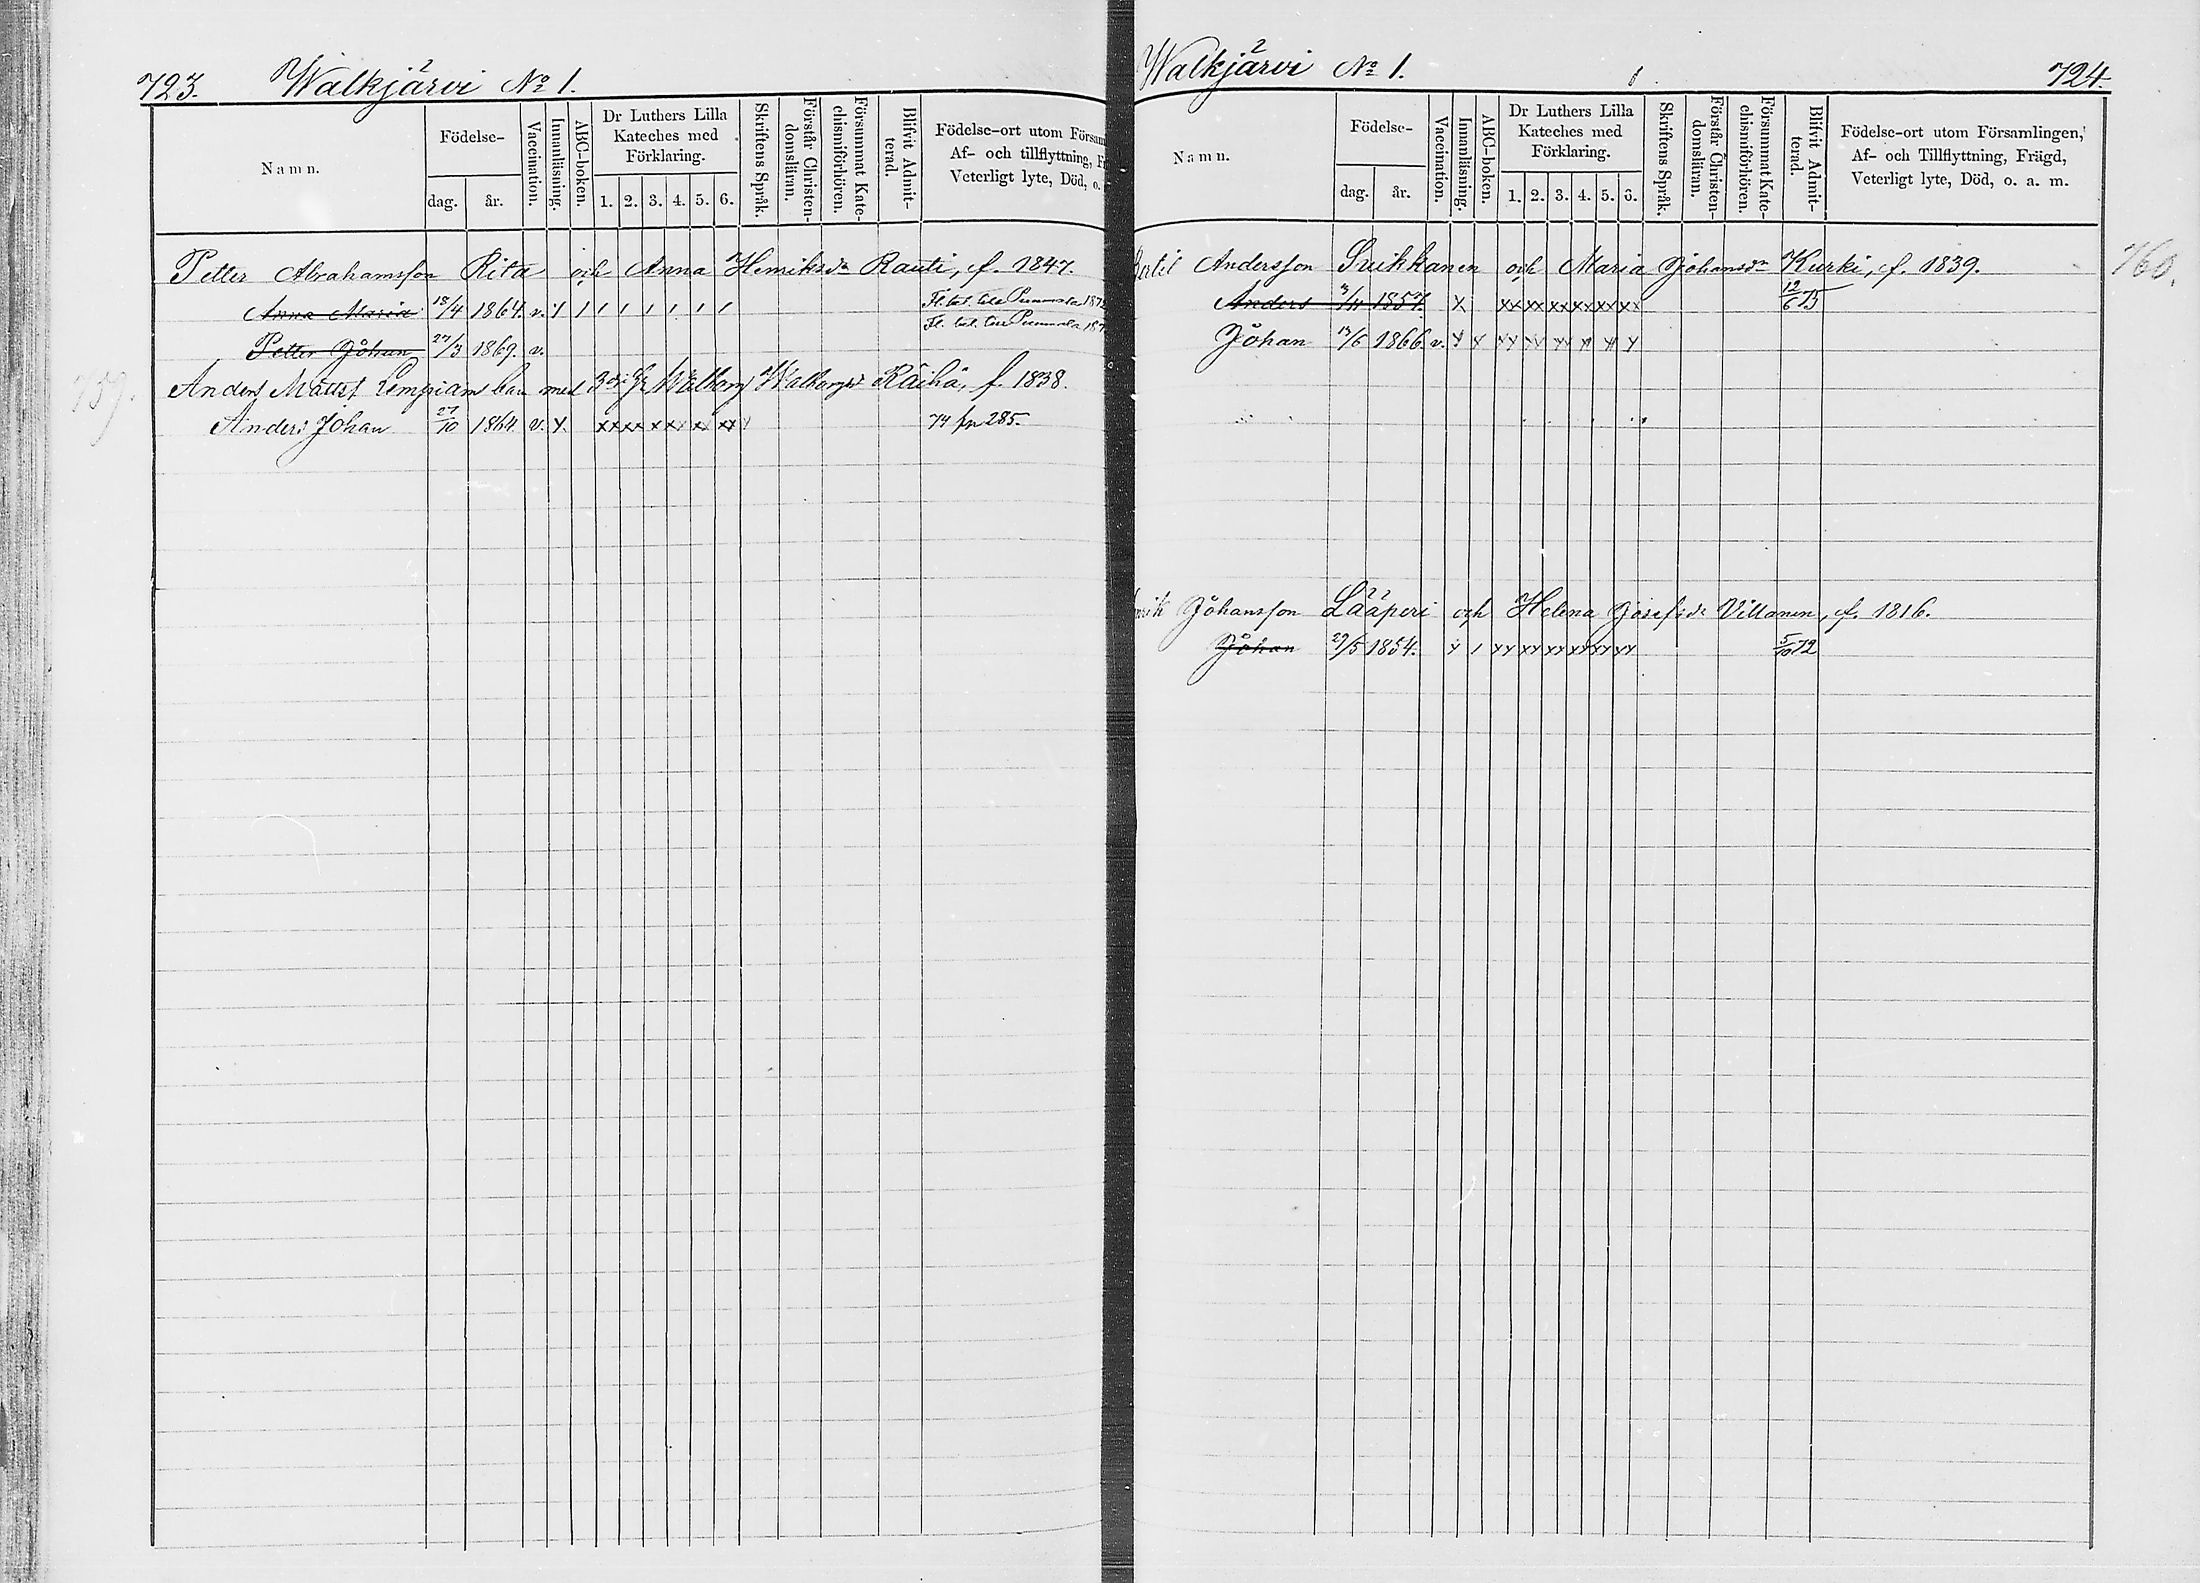 723. Walkjärvi No 1.
Namn.
Födelse-
dag. år.
Vaccination.
Innanläsning.
ABC-boken.
Dr Luthers Lilla
Kateches med
Förklaring.
1. 2. 3. 4. 5. 6.
Skriftens Språk.
Förstår Christen-
domsläran.
Försummat Kate-
chismiförhören.
Blifvit Admit-
terad.
Födelse-ort utom Försum
Af- och tillflyttning, Fr
Veterligt lyte, Död, o.
Petter Abrahamsson Rita och Anna Henriksdr Rauti, f. 1847.
Anna Maria 18/4 1864. v. Fl. bel. till 187
Petter Johan 27/3 1869. v. Fl. bel. till 187
759.
Anders Matts barn med Walborg Räihä, f. 1838.
Anders Johan 27/10 1864 v. x xx xx xx xx xx xx 74 fr 285.
Walkjärvi No 1. 724.
Namn.
Födelse-
dag. år.
Vaccination.
Innanläsning.
ABC-boken.
Dr Luthers Lilla
Kateches med
Förklaring.
1. 2. 3. 4. 5. 6.
Skriftens Språk.
Förstår Christen-
domsläran.
Försummat Kate-
chismiförhören.
Blifvit Admit-
terad.
Födelse-ort utom Församlingen,
Af- och Tillflyttning, Frägd,
Veterligt lyte, Död, o. a. m.
760.
Bertil Andersson Suikkanen och Maria Johansdr Kurki, f. 1839.
Anders 3/11 1857. x xx xx xx xx xx xx 12/6 75
Johan 1866. v. x x xx xx xx x x x
Johansson Lääperi och Helena Josefsdr Villanen, f. 1816.
Johan 29/5 1854. x / xx xx xx xx xx xx 5/10 72